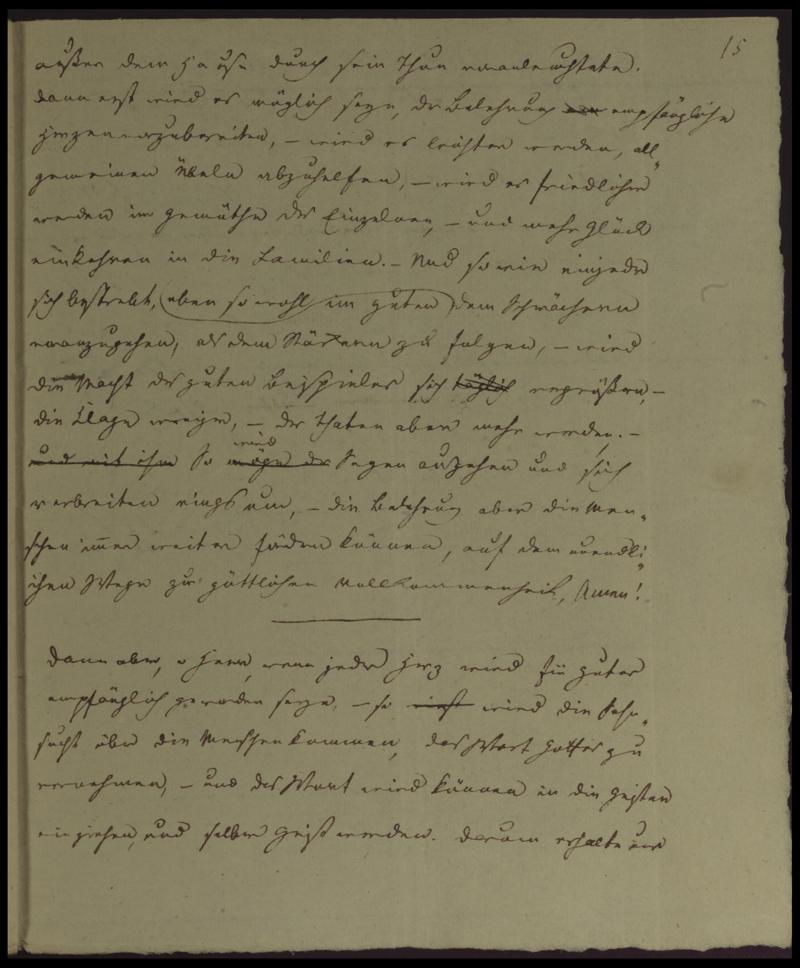 15
außer dem Hause durch sein Thun voranleuchtete.
Dann erst wird es möglich seyn, der Belehrung empfängliche
Herzen vorzubereiten, – wird es leichter werden, all„
gemeinen Übeln abzuhelfen, – wird es friedlicher
werden im Gemüthe des Einzelnen, – und mehr Glück
einkehren in die Familien. – Und so wie ein jeder
sich bestrebt, eben so wohl im guten dem Schwächern
voranzugehen, als dem Stärkern zu folgen, – wird
die Macht des guten Beispieles sich täglich vergrößern, –
die Klage weniger, – der Thaten aber mehr werden. –
wird
und mit ihm So möge der Segen aufgehen und sich
verbreiten rings um, – die Belehrung aber die Men„
schen immer weiter fördern können, auf dem unendli„
chen Wege zur göttlichen Vollkommenheit, Amen!
Dann aber, o Herr, wenn jedes Herz wird für gutes
empfänglich geworden seyn, – so wird die Sehn„
sucht über die Menschen kommen, das Wort Gottes zu
vernehmen, – und das Wort wird können in die Geister
einziehen, und selber Geist werden. Darum erhalte uns